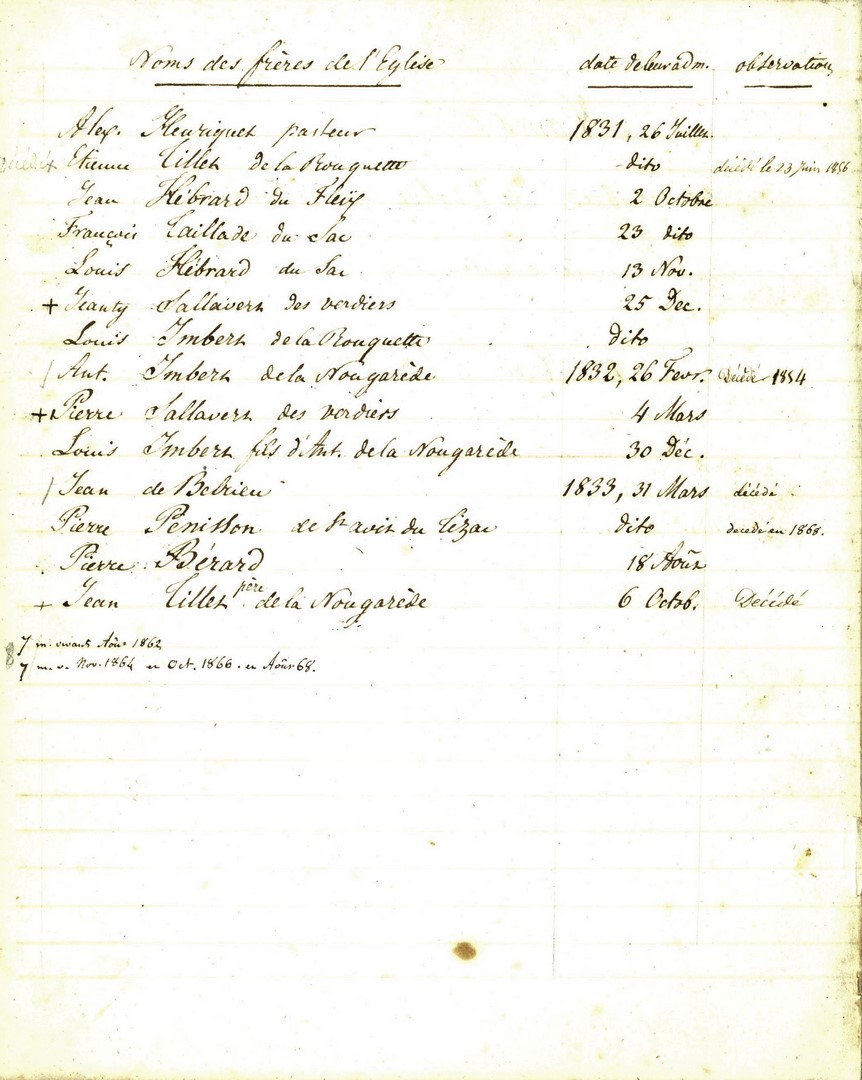 Noms des frères de l'Eglise date de leur adm. observation
Alex. Henriquet pasteur 1831, 26 Juillet
décédé + Etienne Tillet de la Rouquette dito décédé le 23 Juin 1856
Jean Hébrard du Fleix 2 Octobre
François Taillade du Sac 23 dito
Louis Hébrard du Sac 13 Nov.
+ Jeanty Sallavert des verdiers 25 Dec.
Louis Imbert de la Rouquette dito
/ Ant. Imbert de la Nougarède 1832, 26 Fevr. Décédé 1854
+ Pierre Sallavert des verdiers 4 Mars
Louis Imbert fils d'Ant. de la Nougarède 30 Déc.
/ Jean de Belrieu 1833, 31 Mars décédé
Pierre Penisson de St avit du tizac dito decedé en 1868.
Pierre Bérard 18 Août
+ Jean Tillet père de la Nougarède 6 Octob. Décédé
7 m. vivants Août 1862
8 7 m. v. Nov. 1864 en Oct. 1866. en Août 68.